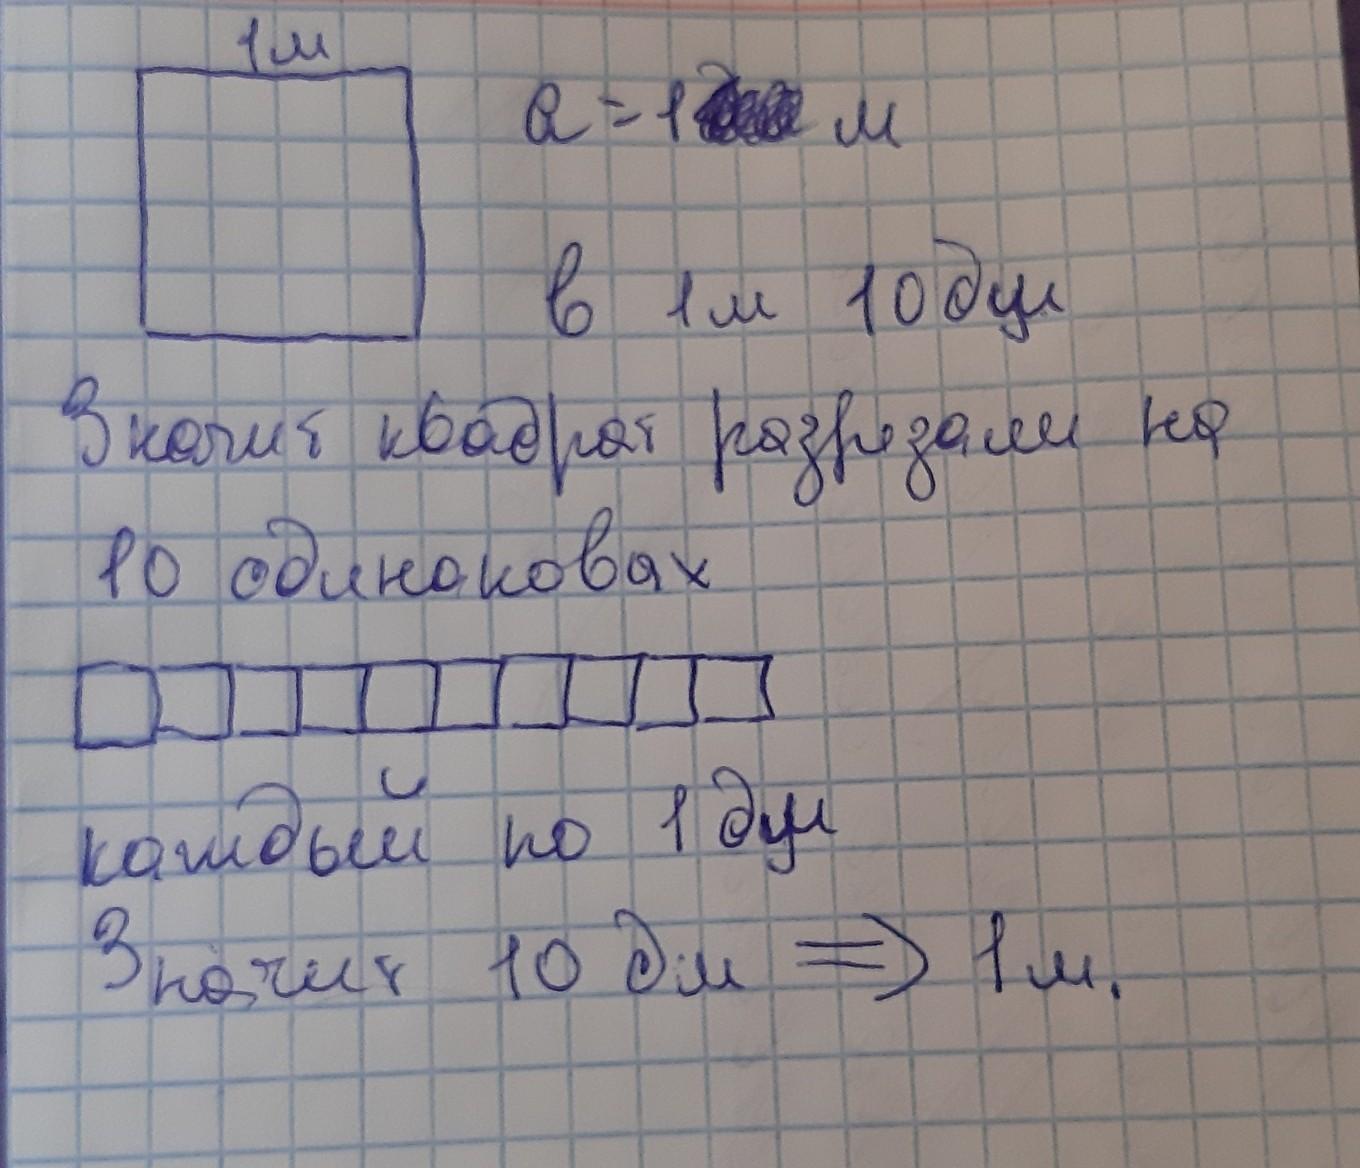 1м
a = 1 м
в 1м 10дм
Значит квадрат разрезали на
10 одинаковах
каждый по 1 дм
Значит 10 дм ⇒ 1м.